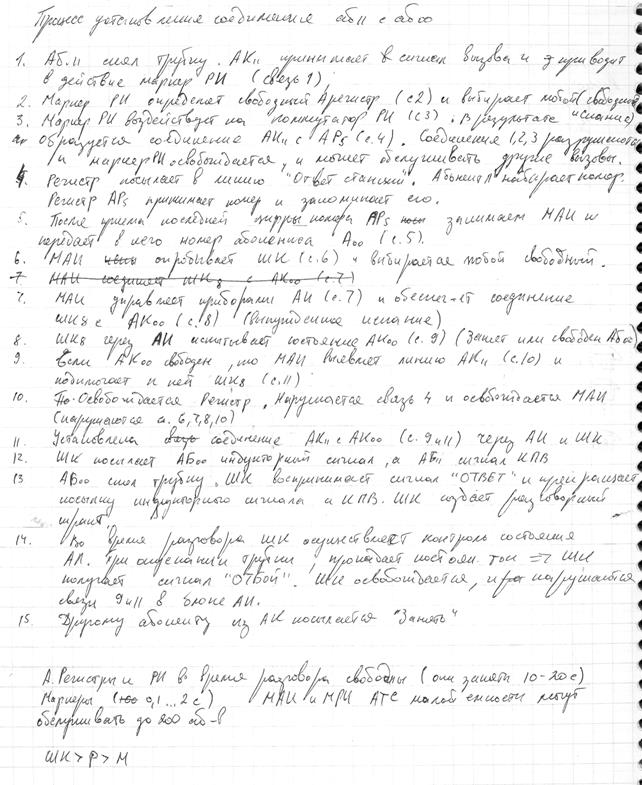 Процесс установления соединения аб11 с аб00
1. Аб.11 снял трубку. АК11 принимает сигнал вызова и приводит
в действие маркер РИ (связь 1)
2. Маркер РИ определяет свободный Арегистр (с2) и выбирает любой (свободный
3. Маркер РИ воздействует на коммутатор РИ (с3). В результате искание)
образуется соединение АК11 с АР5 (с.4). Соединения 1,2,3 разрушаются
и маркер РИ освобождается, и может обслуживать другие вызовы.
4. Регистр посылает в линию "Ответ станции". Абонент А набирает номер.
Регистр АР5 принимает номер и запоминает его.
5. После приема последней цифры номера АР5 занимает МАИ и
передает в него номер абонента А00 (с.5).
6. МАИ опробывает ШК (с.6) и выбирается любой свободный.
7. МАИ соединяет ШК8 с АК00 (с.7)
7. МАИ управляет приборами АИ (с.7) и обеспеч-ет соединение
ШК8 с АК00 (с.8) (вынужденное искание)
8. ШК8 через АИ испытывает состояние АК00 (с.9) (Занят или свободен Аб00)
9. Если АК00 свободен, то МАИ выявляет линию АК11 (с.10) и
подключает к ней ШК8 (с.11)
10. Освобождается Регистр, Нарушается связь 4 и освобождается МАИ
(нарушаются с. 6,7,8,10)
11. Установлена соединение АК11 с АК00 (с. 9 и 11) через АИ и ШК
12. ШК посылает АБ00 индукторный сигнал, а АБ11 сигнал КПВ
13 АБ00 снял трубку, ШК воспринимает сигнал "ОТВЕТ" и прекращает
посылку индукторного сигнала и КПВ. ШК создает разговорный
тракт
14. Во время разговора ШК осуществляет контроль состояния
АЛ. При опускании трубки, пропадает постоян. ток => ШК
получает сигнал "ОТБОЙ". ШК освобождается, и нарушаются
связи 9 и 11 в блоке АИ.
15. Другому абоненту из АК посылается "Занято"
А. Регистры и РИ во время разговора свободны (они заняты 10-20с)
Маркеры (0,1...2с) МАИ и МРИ АТС малой емкости могут
обслуживать до 200 аб-в
ШК > Р > М